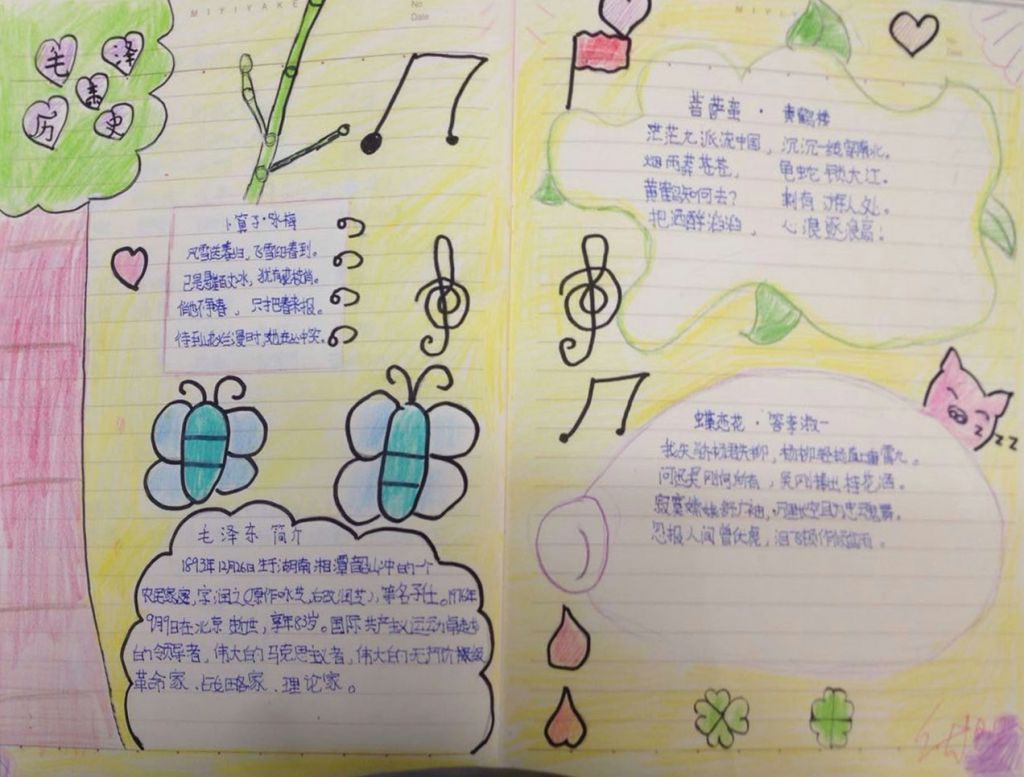 MIYIYAKE
No
Date
毛 泽
东
历 史
卜算子·咏梅
风雪送春归，飞雪迎春到。
已是悬崖百丈冰，犹有花枝俏。
俏也不争春，只才把春来报。
待到山花烂漫时，她在丛中笑。
毛泽东简介
1893年12月26日生于湖南湘潭韶山冲的一个
农民家庭，字润之（原作咏芝，后改润芝），笔名子任。1976年
9月9日在北京逝世，享年83岁。国际共产主义运动
的领导者，伟大的马克思主义者，伟大的无产阶级
革命家、战略家、理论家。
菩萨蛮·黄鹤楼
茫茫九派流中国，沉沉一线穿南北。
烟雨莽苍苍，龟蛇锁大江。
黄鹤知何去？剩有游人处。
把酒酹滔滔，心浪逐浪高！
蝶恋花·答李淑一
我失骄杨君失柳，杨柳轻飏直上重霄九。
问讯吴刚何所有，吴刚捧出桂花酒。
寂寞嫦娥舒广袖，万里长空且为忠魂舞。
忽报人间曾伏虎，泪飞顿作倾盆雨。
z z z